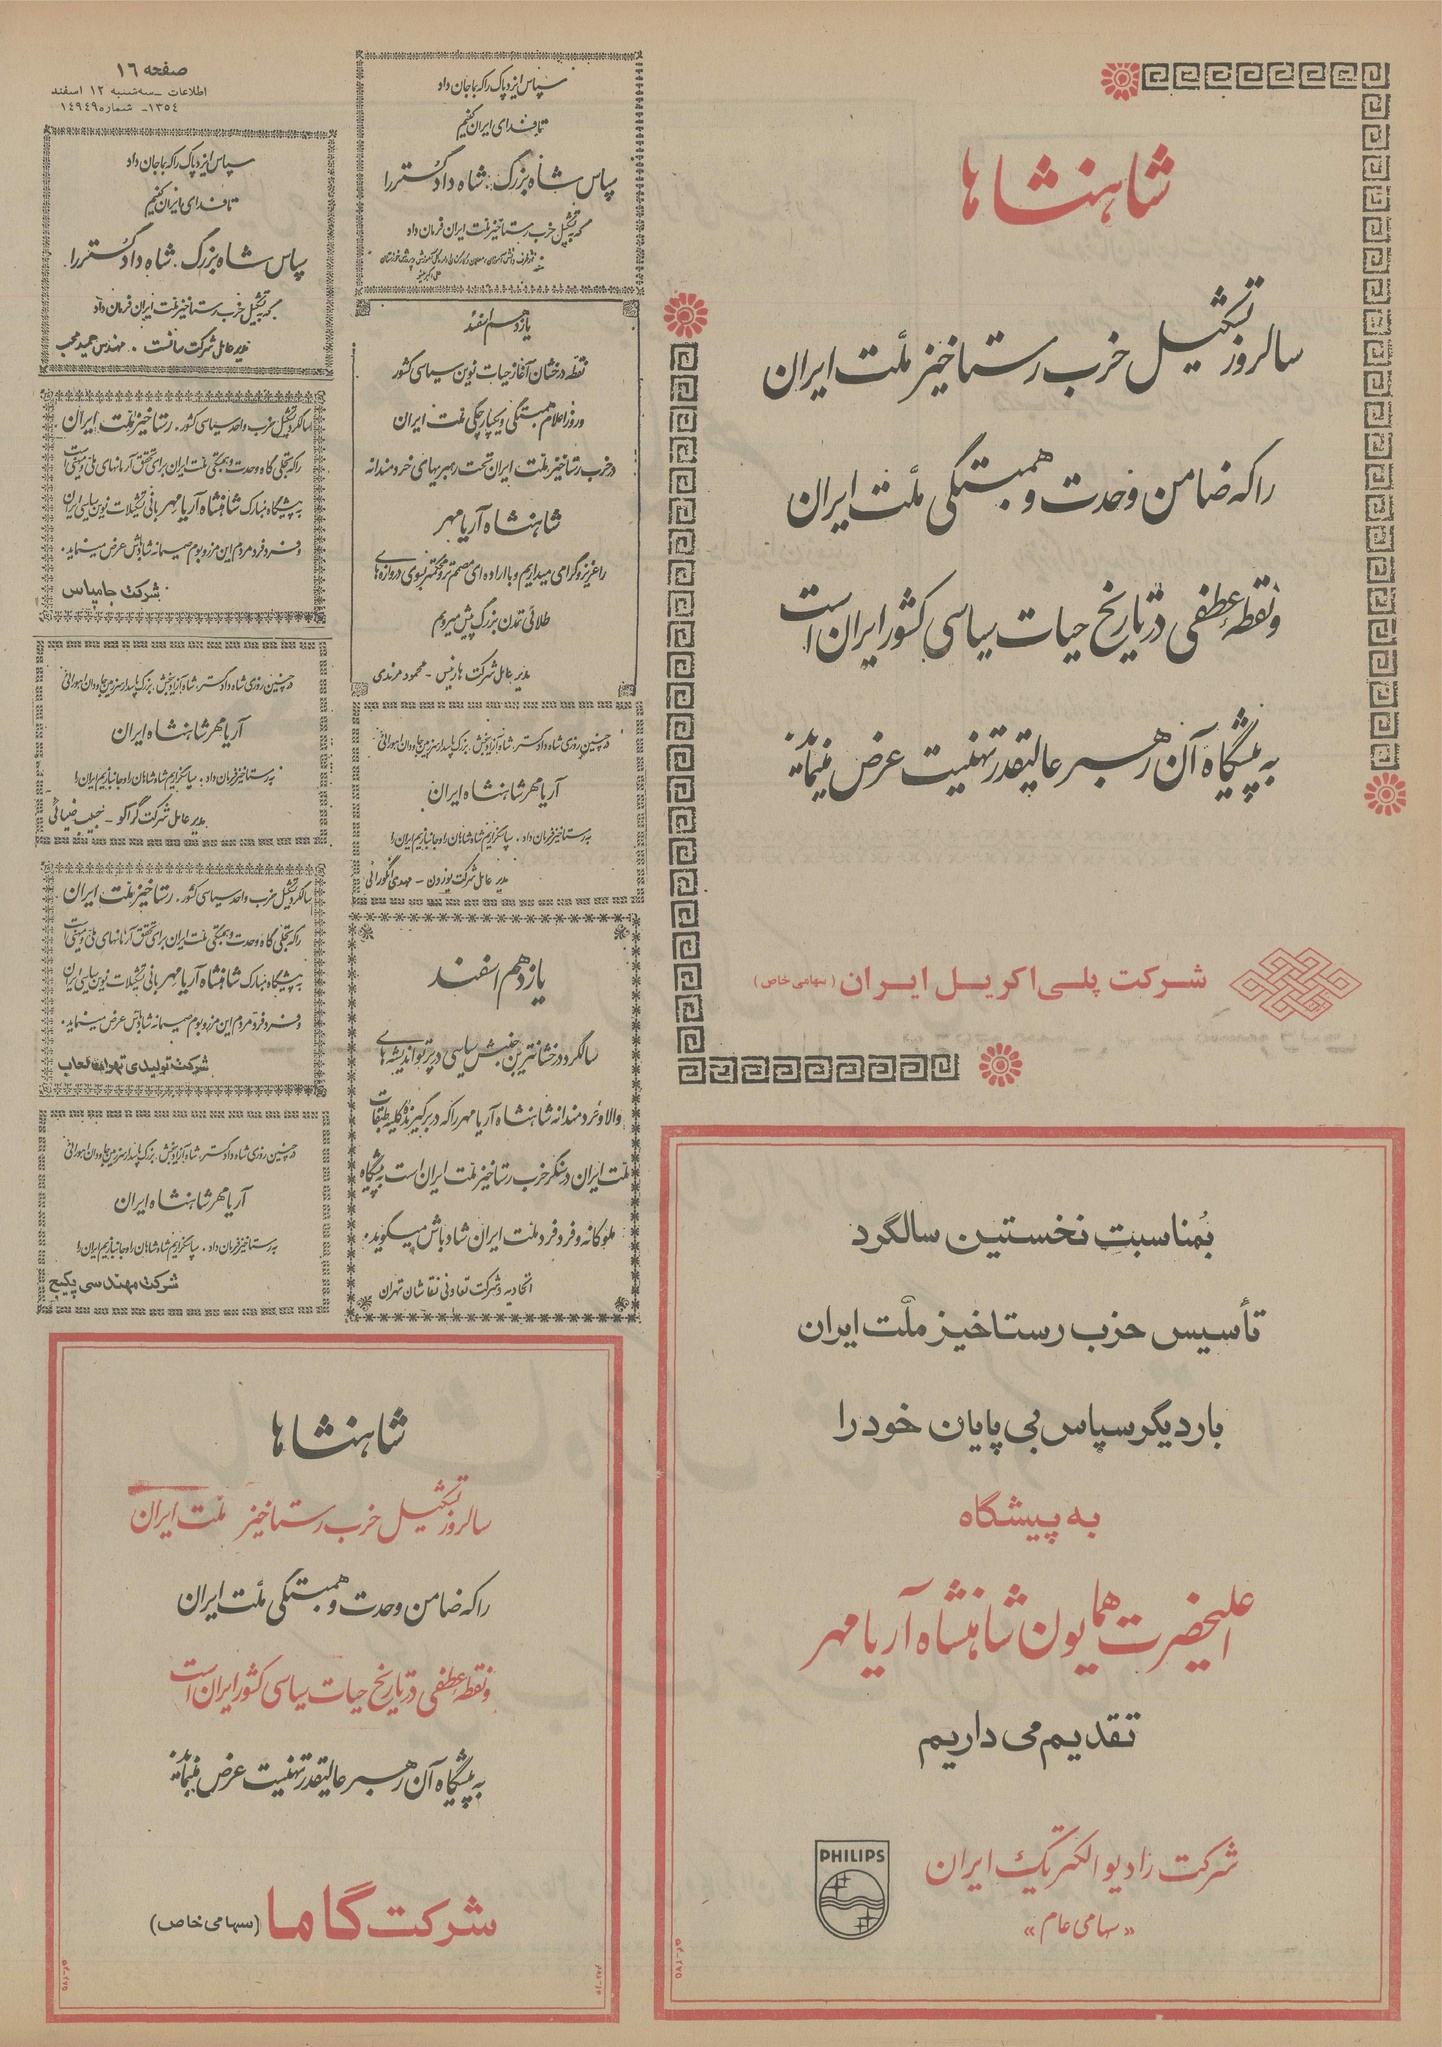 صفحه ۱۶
اطلاعات - سه‌شنبه ۱۲ اسفند
۱۳۵۴ - شماره ۱۴۹۴۹
شاهنشاها
سالروز تشکیل حزب رستاخیز ملت ایران
را که ضامن وحدت و همبستگی ملت ایران
و نقطه عطفی در تاریخ حیات سیاسی کشور ایران است
به پیشگاه آن رهبر عالیقدر تهنیت عرض مینماید.
شرکت پلی‌اکریل ایران (سهامی خاص)
بمناسبت نخستین سالگرد
تأسیس حزب رستاخیز ملت ایران
بار دیگر سپاس بی پایان خود را
به پیشگاه
اعلیحضرت همایون شاهنشاه آریامهر
تقدیم می داریم
شرکت رادیو الکتریک ایران
«سهامی عام»
PHILIPS
سپاس ایزد پاک را که بما جان داد
تا فدای ایران کنیم
سپاس شاه بزرگ، شاه دادگستر را
که به تشکیل حزب رستاخیز ملت ایران فرمان داد
یازدهم اسفند
نقطه درخشان آغاز حیات نوین سیاسی کشور
و روز اعلام همبستگی و یکپارچگی ملت ایران
در حزب رستاخیز ملت ایران تحت رهبریهای خردمندانه
شاهنشاه آریامهر
را عزیز و گرامی میداریم و با اراده‌ای مصمم تر و محکمتر بسوی دروازه‌های
طلائی تمدن بزرگ پیش میرویم
مدیر عامل شرکت هارنیس - محمود مرندی
در چنین روزی شاه دادگستر، شاه آزادیبخش، بزرگ پاسدار سرزمین جاودان اهورائی
آریامهر شاهنشاه ایران
به رستاخیز فرمان داد، سپاسگزاریم شاه شاهان را و جانبازیم ایران را
مدیر عامل شرکت یوزدن - مهدی انگورانی
یازدهم اسفند
سالگرد درخشانترین جنبش سیاسی در پرتو اندیشه‌های
والا و خردمندانه شاهنشاه آریامهر را که در برگیرنده کلیه طبقات
ملت ایران در سنگر حزب رستاخیز ملت ایران است به پیشگاه
ملوکانه و فرد فرد ملت ایران شادباش میگوید.
اتحادیه و شرکت تعاونی نقاشان تهران
سپاس ایزد پاک را که بما جان داد
تا فدای ایران کنیم
سپاس شاه بزرگ، شاه دادگستر را
که به تشکیل حزب رستاخیز ملت ایران فرمان داد
مدیر عامل شرکت سافت، مهندس حمید محب
سالگرد تشکیل حزب واحد سیاسی کشور، رستاخیز ملت ایران
را که تجلی گاه وحدت و همبستگی ملت ایران برای تحقق آرمانهای ملی و میهنی است
به پیشگاه مبارک شاهنشاه آریامهر بانی تشکیلات نوین سیاسی ایران
و فرد فرد مردم این مرز و بوم صمیمانه شادباش عرض مینماید.
شرکت جامپاس
در چنین روزی شاه دادگستر، شاه آزادیبخش، بزرگ پاسدار سرزمین جاودان اهورائی
آریامهر شاهنشاه ایران
به رستاخیز فرمان داد، سپاسگزاریم شاه شاهان را و جانبازیم ایران را
مدیر عامل شرکت گراکو - حبیب ضیائی
سالگرد تشکیل حزب واحد سیاسی کشور، رستاخیز ملت ایران
را که تجلی گاه وحدت و همبستگی ملت ایران برای تحقق آرمانهای ملی و میهنی است
به پیشگاه مبارک شاهنشاه آریامهر بانی تشکیلات نوین سیاسی ایران
و فرد فرد مردم این مرز و بوم صمیمانه شادباش عرض مینماید.
شرکت تولیدی تهران لعاب
در چنین روزی شاه دادگستر، شاه آزادیبخش، بزرگ پاسدار سرزمین جاودان اهورائی
آریامهر شاهنشاه ایران
به رستاخیز فرمان داد، سپاسگزاریم شاه شاهان را و جانبازیم ایران را
شرکت مهندسی پکیج
شاهنشاها
سالروز تشکیل حزب رستاخیز ملت ایران
را که ضامن وحدت و همبستگی ملت ایران
و نقطه عطفی در تاریخ حیات سیاسی کشور ایران است
به پیشگاه آن رهبر عالیقدر تهنیت عرض مینماید.
شرکت گاما (سهامی خاص)